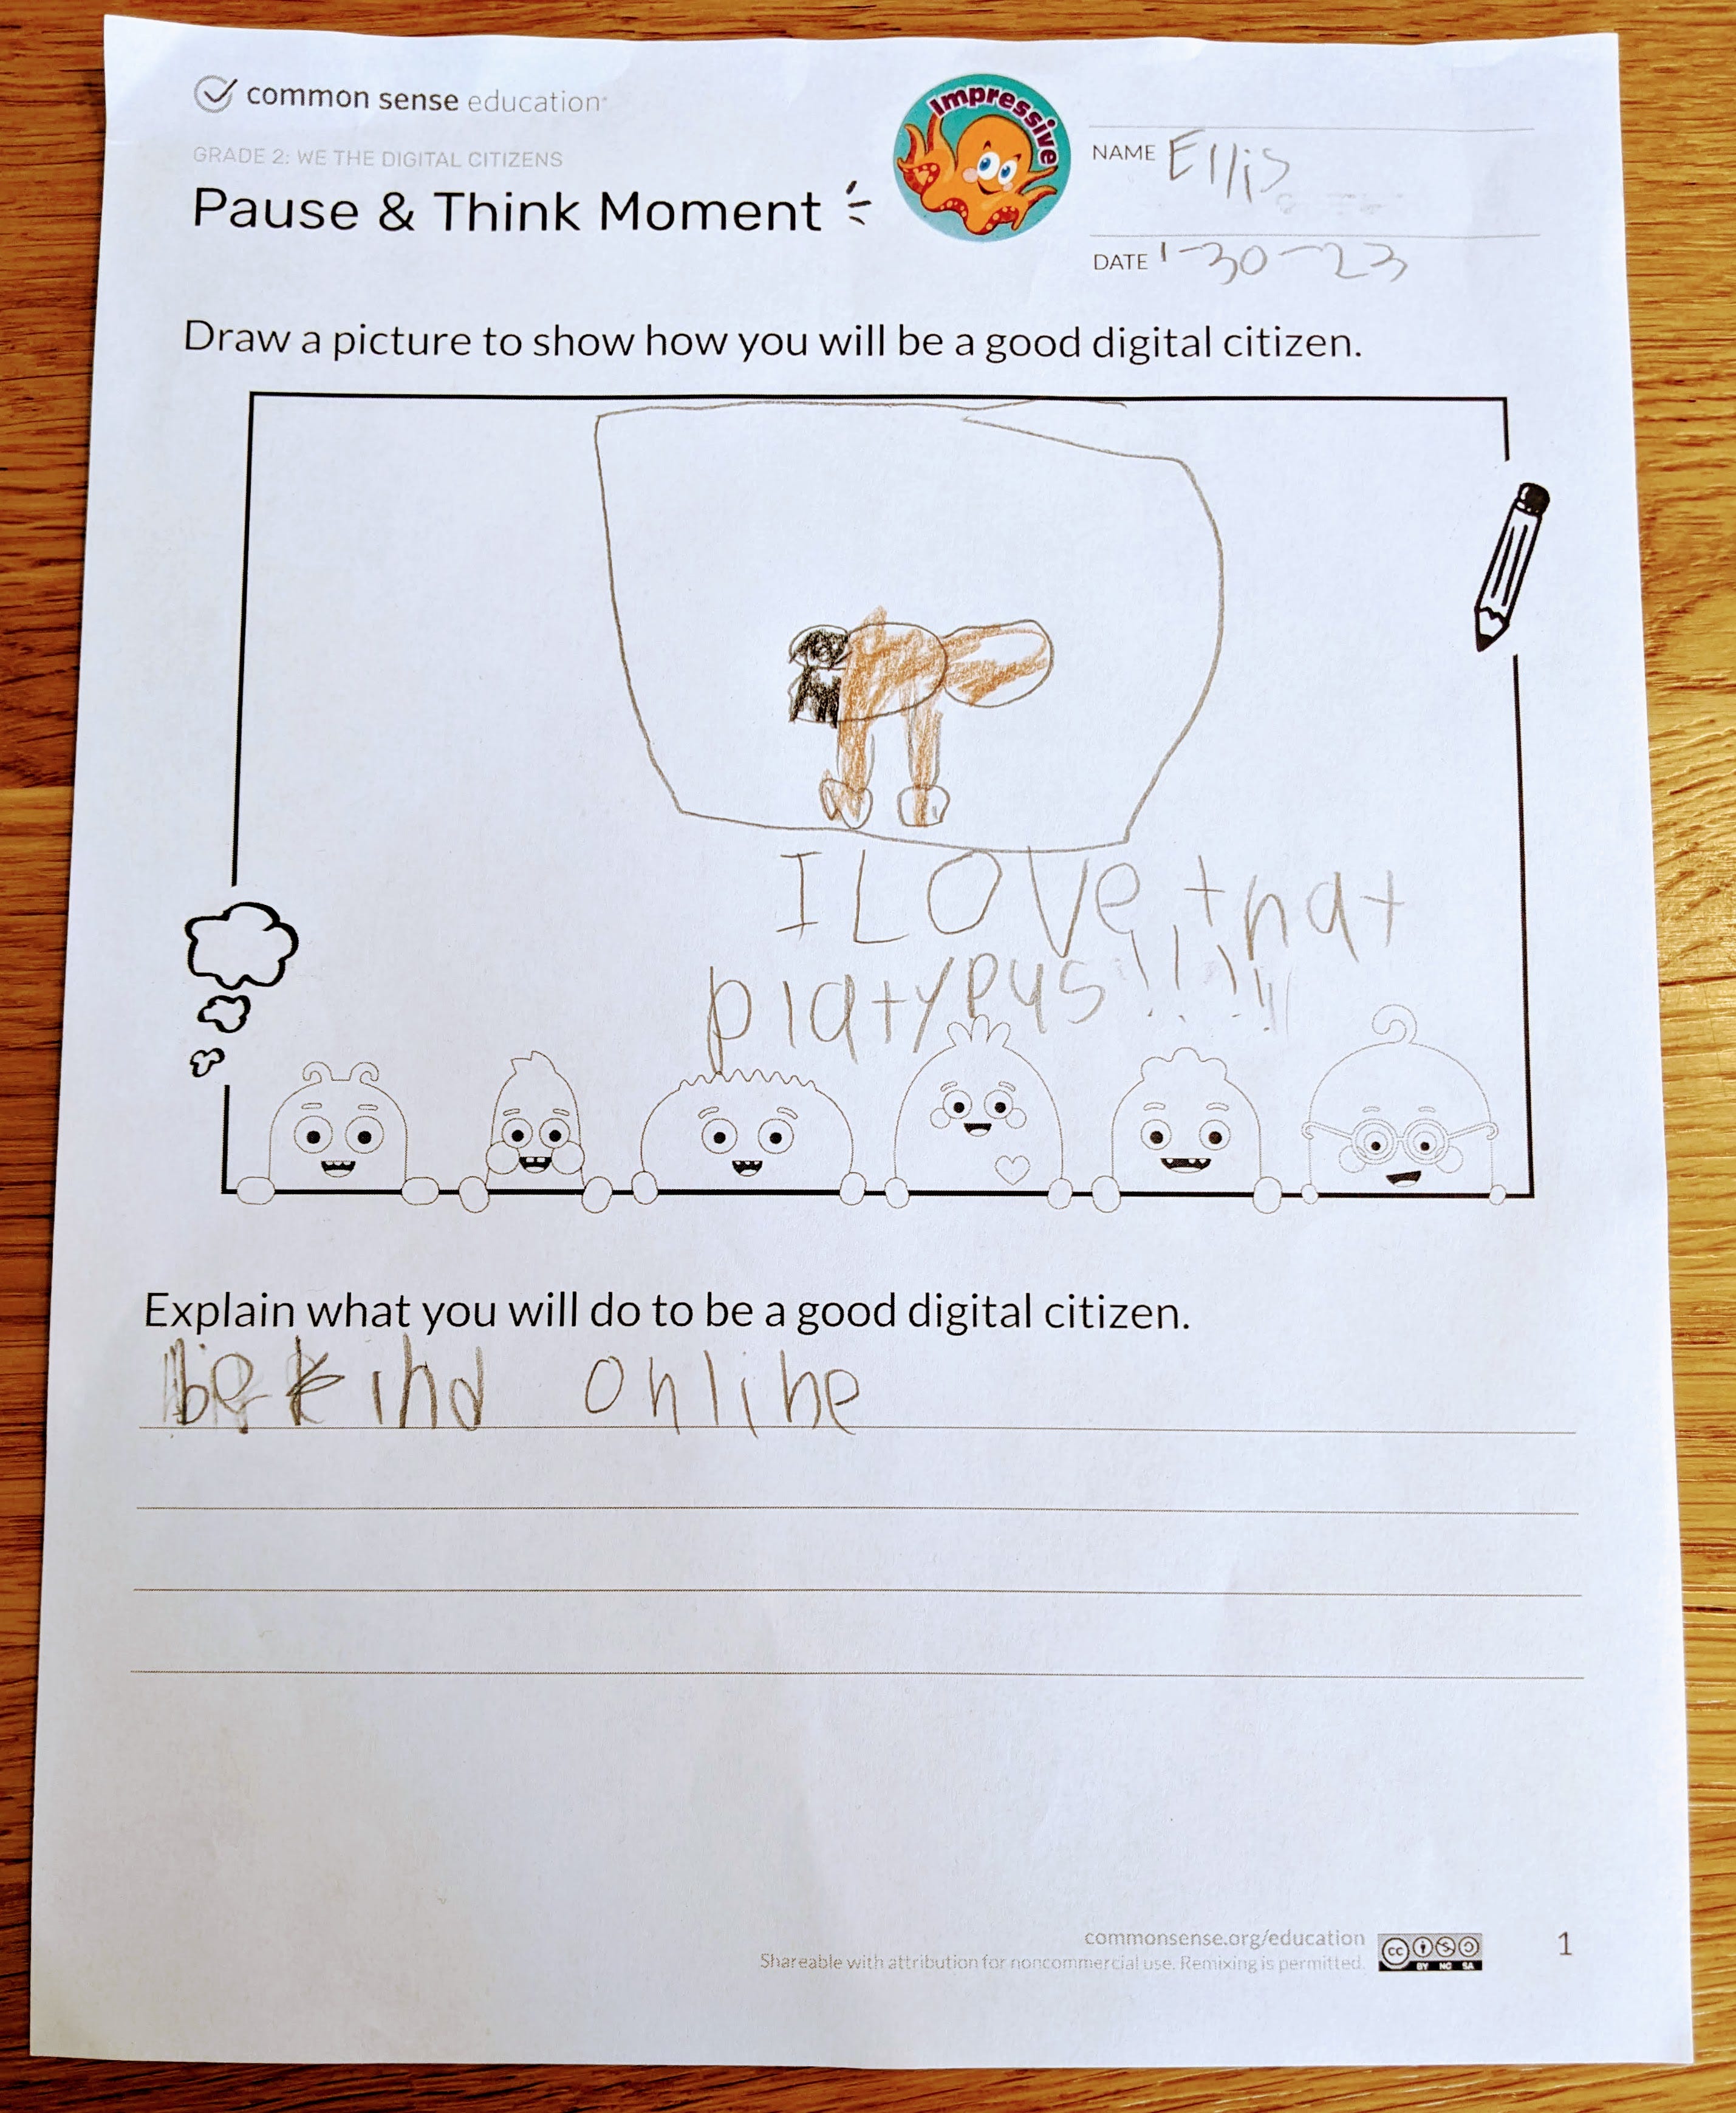 common sense education
GRADE 2: WE THE DIGITAL CITIZENS
Pause & Think Moment
Impressive
NAME Ellis
DATE 1-30-23
Draw a picture to show how you will be a good digital citizen.
I LOVe that
platypus!!!!!!
Explain what you will do to be a good digital citizen.
be kind online
commonsense.org/education
Shareable with attribution for noncommercial use. Remixing is permitted.
cc BY NC SA
1